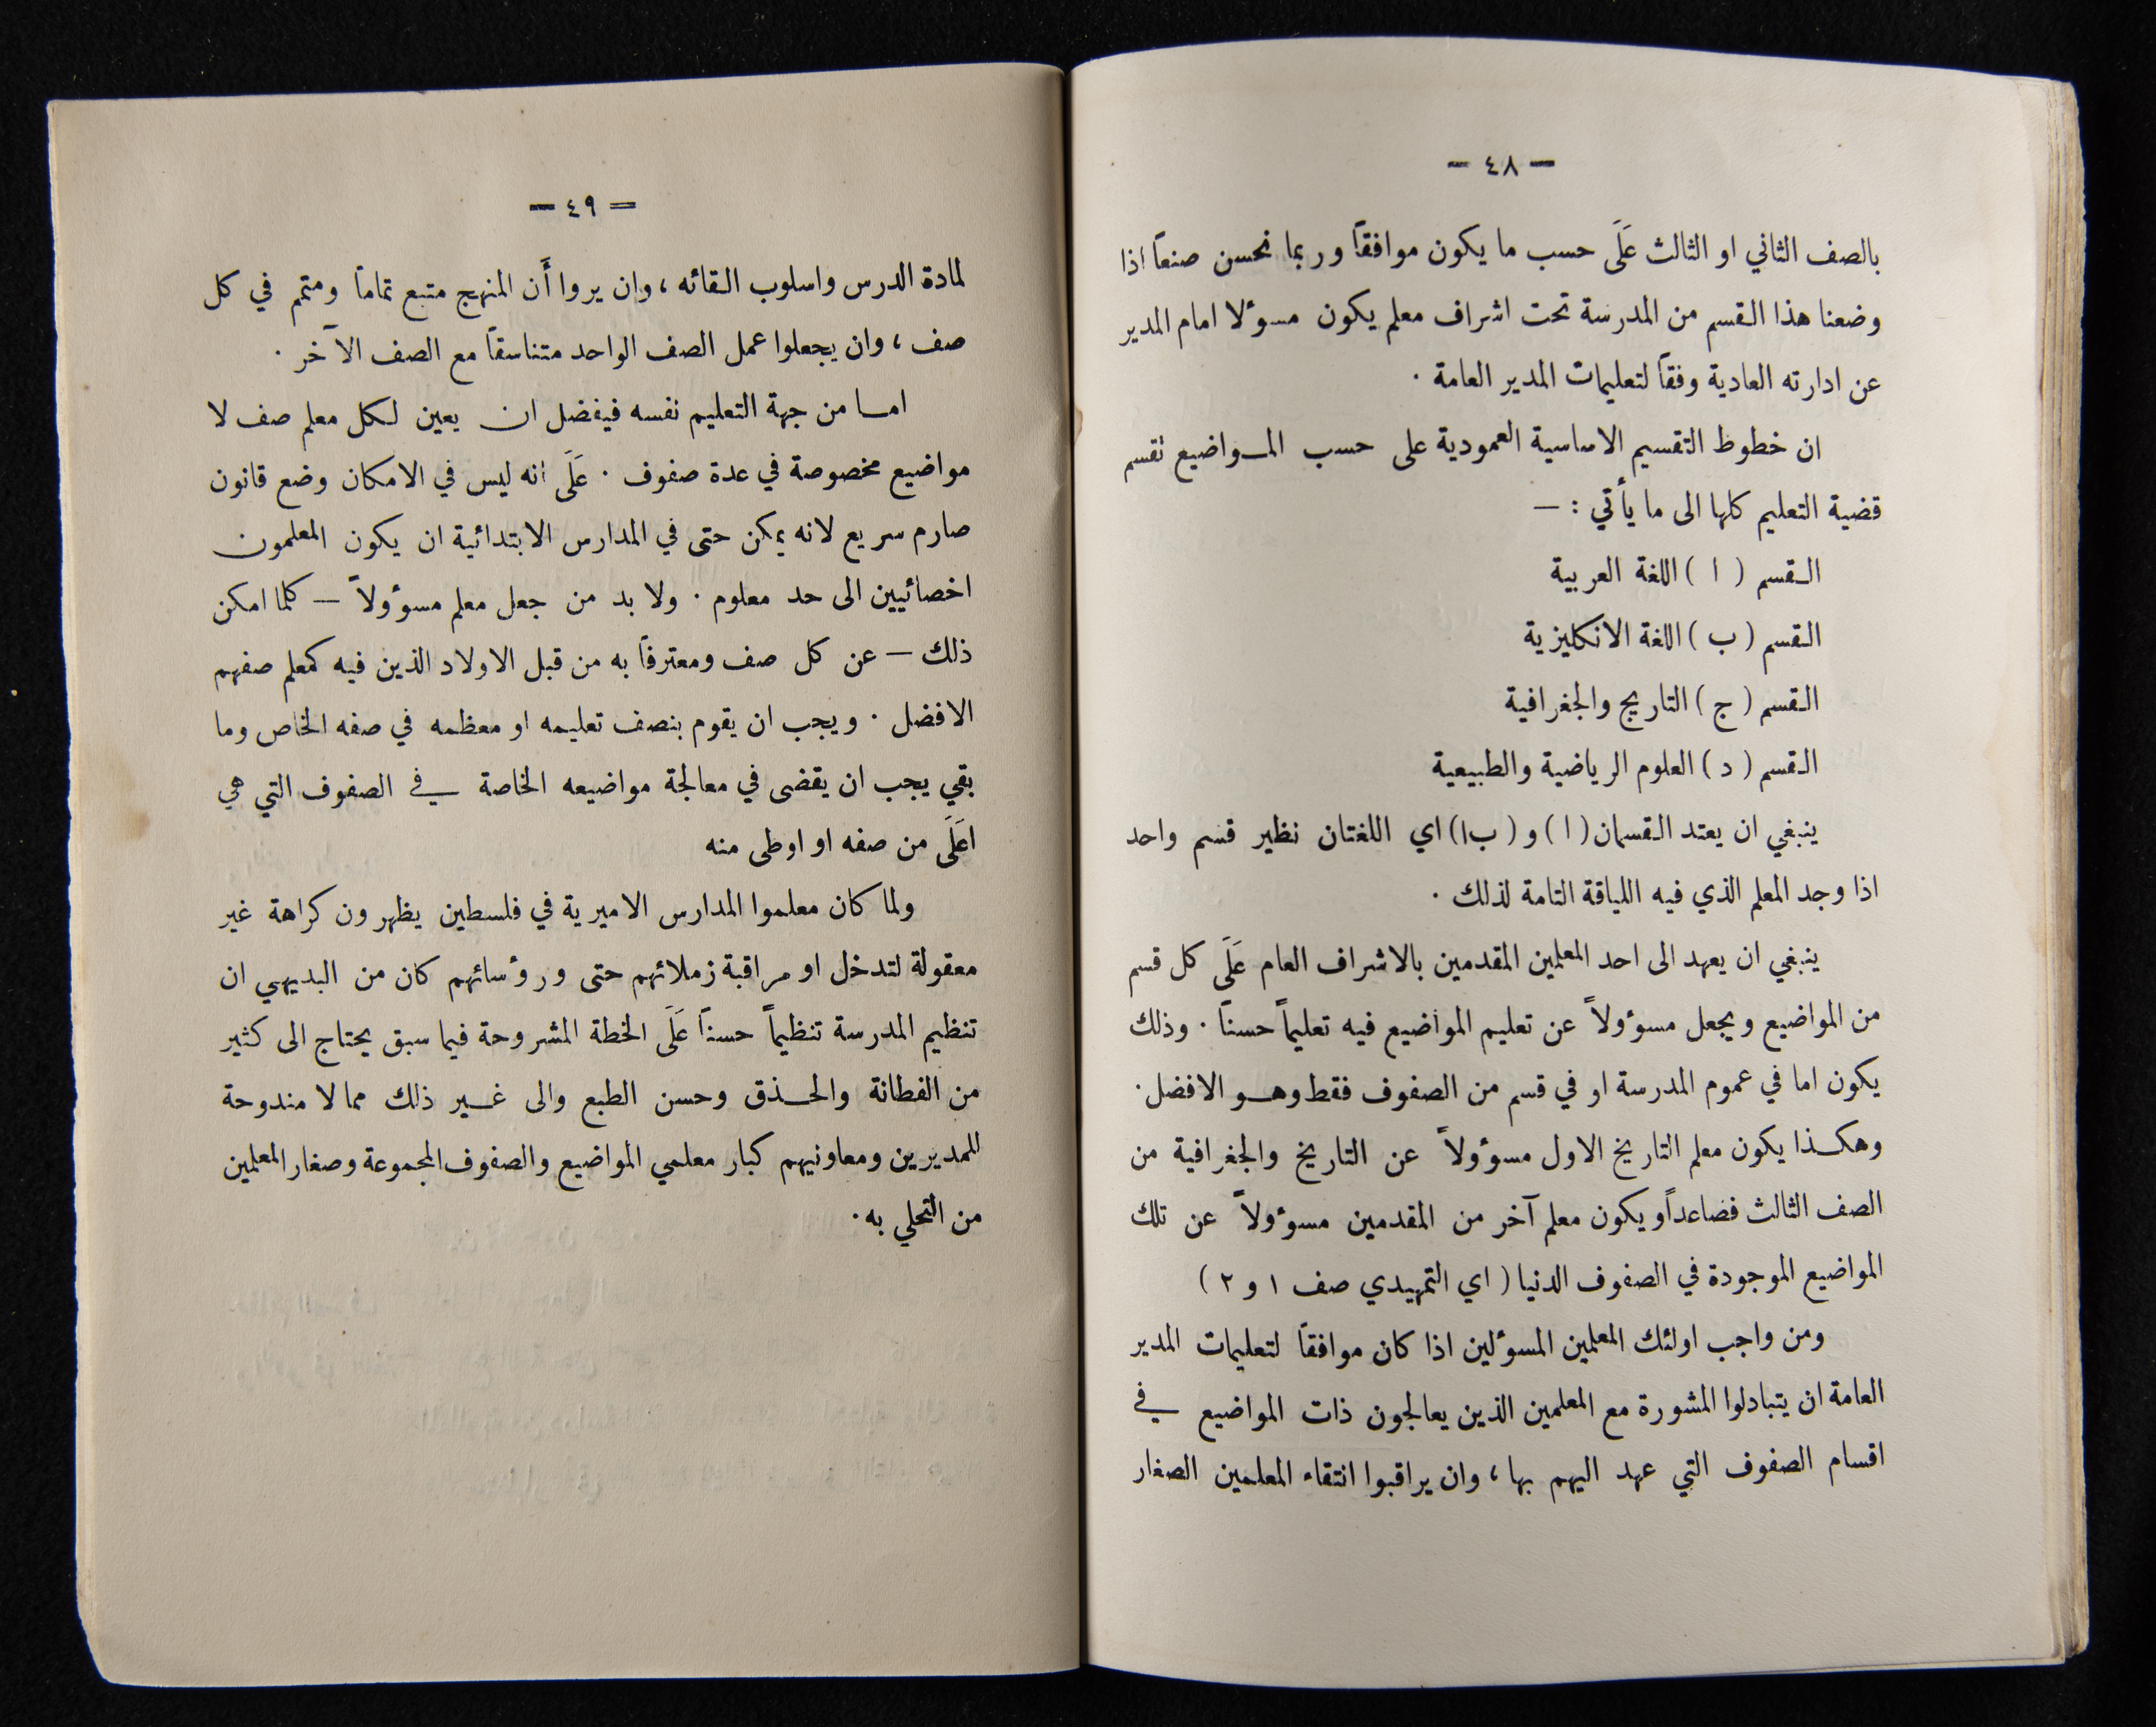 — ٤٨ —
بالصف الثاني او الثالث عَلَى حسب ما يكون موافقاً وربما نحسن صنعاً اذا
وضعنا هذا القسم من المدرسة تحت اشراف معلم يكون مسؤلا امام المدير
عن ادارته العادية وفقاً لتعليمات المدير العامة ٠
ان خطوط التقسيم الاساسية العمودية على حسب المـواضيع نقسم
قضية التعليم كلها الى ما يأتي : —
القسم ( ا ) اللغة العربية
القسم ( ب ) اللغة الانكليزية
القسم ( ج ) التاريخ والجغرافية
القسم ( د ) العلوم الرياضية والطبيعية
ينبغي ان يعتد القسمان ( ا ) و ( ب١) اي اللغتان نظير قسم واحد
اذا وجد المعلم الذي فيه اللياقة التامة لذلك ٠
ينبغي ان يعهد الى احد المعلمين المقدمين بالاشراف العام عَلَى كل قسم
من المواضيع ويجعل مسوؤلاً عن تعليم المواضيع فيه تعليماً حسناً ٠ وذلك
يكون اما في عموم المدرسة او في قسم من الصفوف فقط وهـو الافضل ٠
وهكـذا يكون معلم التاريخ الاول مسوؤلاً عن التاريخ والجغرافية من
الصف الثالث فصاعداً ويكون معلم آخر من المقدمين مسوؤلاً عن تلك
المواضيع الموجودة في الصفوف الدنيا ( اي التمهيدي صف ١ و ٢ )
ومن واجب اولئك المعلمين المسؤلين اذا كان موافقاً لتعليمات المدير
العامة ان يتبادلوا المشورة مع المعلمين الذين يعالجون ذات المواضيع في
اقسام الصفوف التي عهد اليهم بها ، وان يراقبوا انتقاء المعلمين الصغار
= ٤٩ —
لمادة الدرس واسلوب القائه ، وان يروا أَن المنهج متبع تماماً ومتمم في كل
صف ، وان يجعلوا عمل الصف الواحد متناسقاً مع الصف الآخر ٠
امـا من جهة التعليم نفسه فيفضل ان يعين لكل معلم صف لا
مواضيع مخصوصة في عدة صفوف ٠ عَلَى انه ليس في الامكان وضع قانون
صارم سريع لانه يمكن حتى في المدارس الابتدائية ان يكون المعلمون
اخصائيين الى حد معلوم ٠ ولا بد من جعل معلم مسوؤلاً — كلما امكن
ذلك — عن كل صف ومعترفاً به من قبل الاولاد الذين فيه كمعلم صفهم
الافضل ٠ ويجب ان يقوم بنصف تعليمه او معظمه في صفه الخاص وما
بقي يجب ان يقضى في معالجة مواضيعه الخاصة في الصفوف التي هي
اعَلَى من صفه او اوطى منه
ولما كان معلموا المدارس الاميرية في فلسطين يظهرون كراهة غير
معقولة لتدخل او مراقبة زملائهم حتى ورؤسائهم كان من البديهي ان
تنظيم المدرسة تنظيماً حسناً عَلَى الخطة المشروحة فيما سبق يحتاج الى كثير
من الفطانة والحـذق وحسن الطبع والى غـير ذلك مما لا مندوحة
للمديرين ومعاونيهم كبار معلمي المواضيع والصفوف المجموعة وصغار المعلمين
من التحلي به ٠